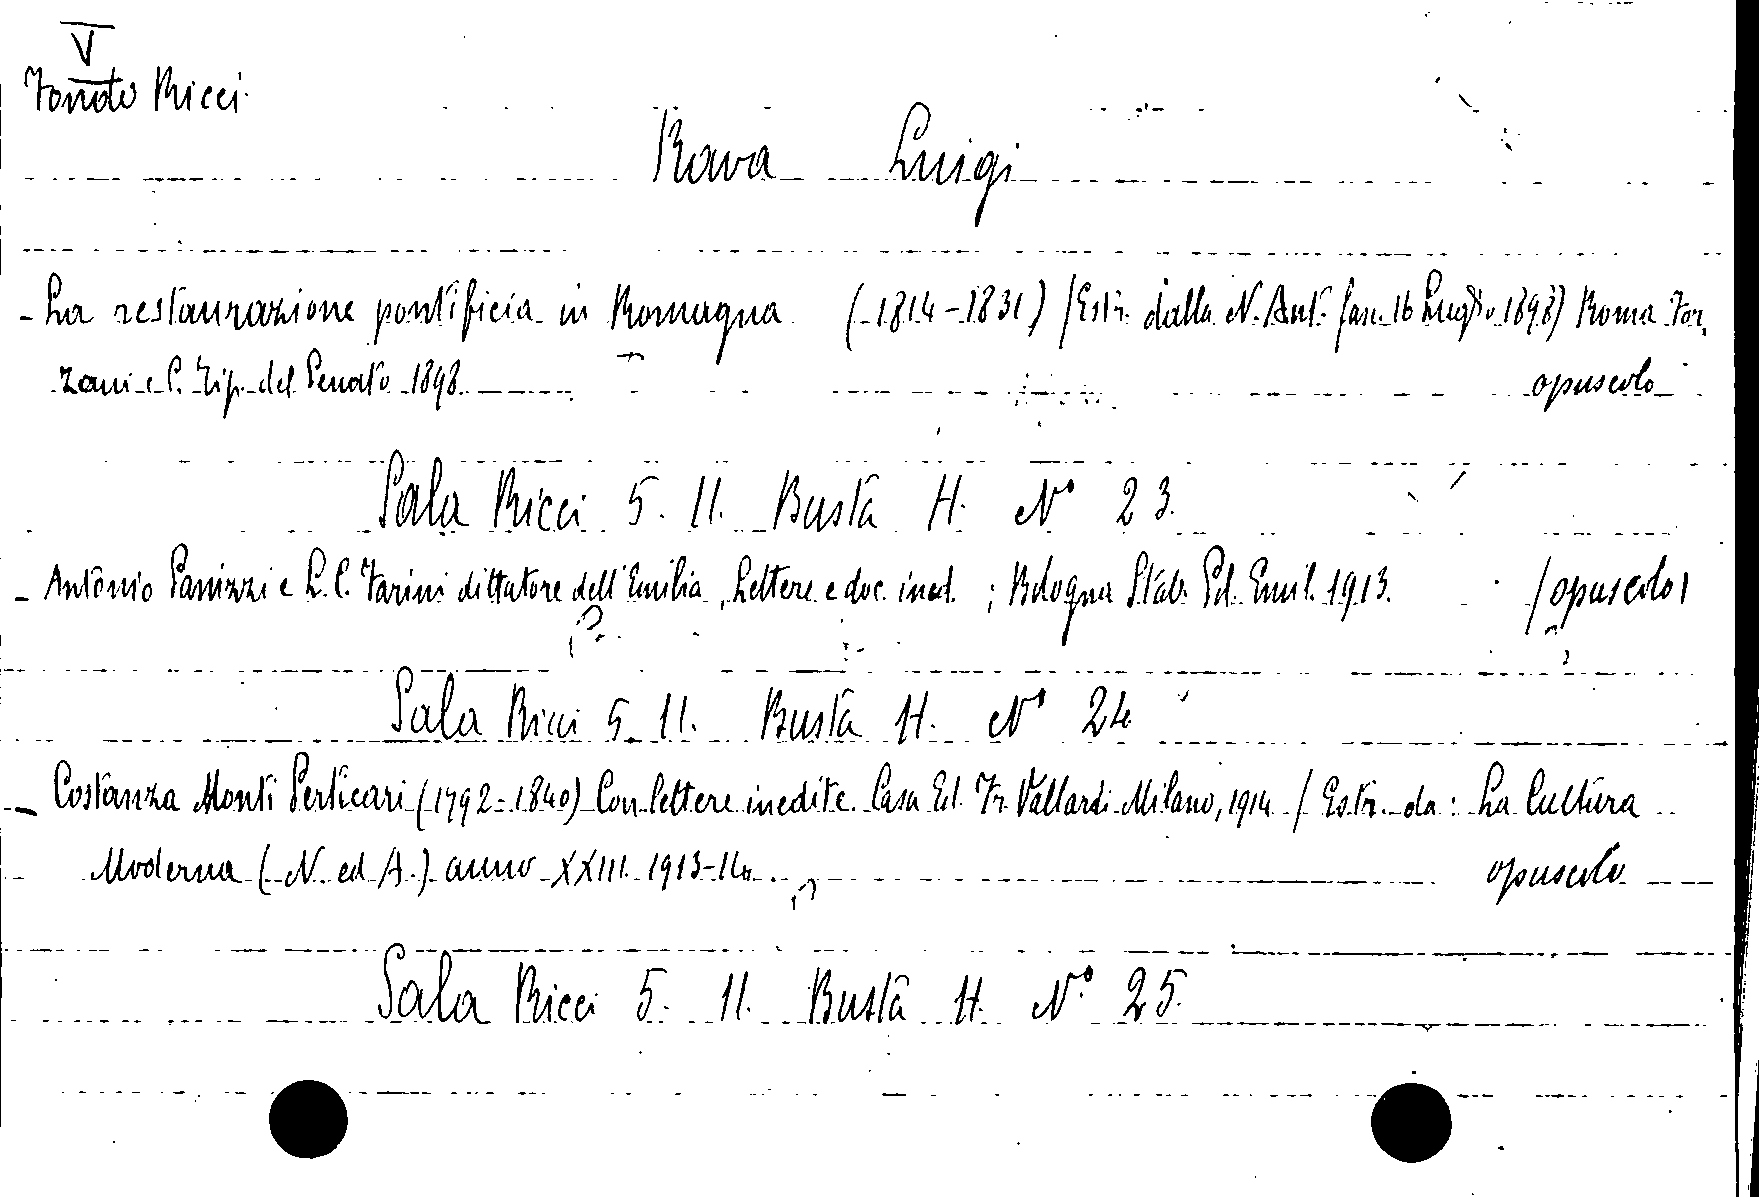 V
Fondo Ricci
Rava Luigi
- La restaurazione pontificia in Romagna (1814-1831) (Estr. dalla N. Ant. fasc. 16 Luglio 1898) Roma For,
zani e C. Tip. del Senato 1898. opuscolo
Sala Ricci 5. 11. Busta H. N° 23.
- Antonio Panizzi e L. C. Farini dittatore dell'Emilia, Lettere e doc. ined. ; Bologna Stab. Pol. Emil. 1913. (opuscolo)
Sala Ricci 5. 11. Busta H. N° 24
- Costanza Monti Perticari (1792-1840) Con lettere inedite. Casa Ed. Fr. Vallardi Milano, 1914 / Estr. da: La Cultura
Moderna (N. ed A.) anno XXIII. 1913-14. opuscolo
Sala Ricci 5. 11. Busta H. N° 25.